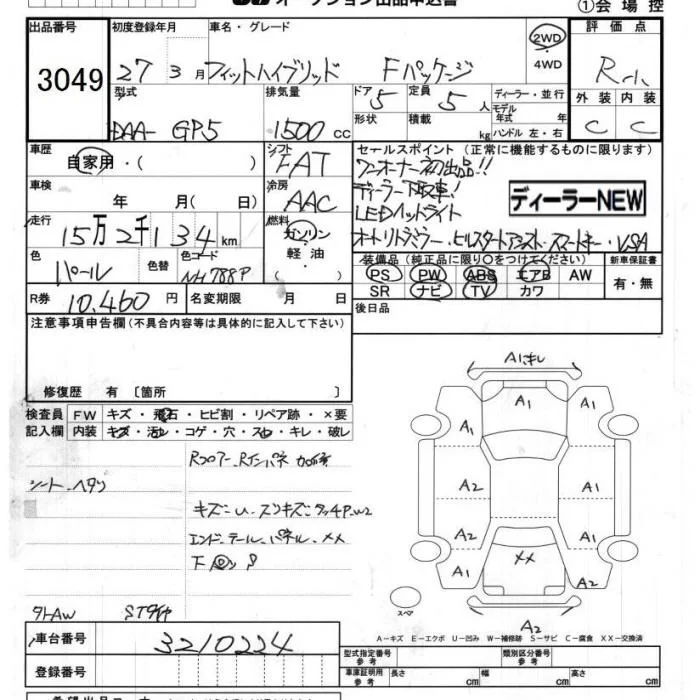 オークション出品申込書
①会 場 控
出品番号 初度登録年月 車名・グレード 2WD 評 価 点
3049 27 3 月 フィットハイブリッド Fパッケージ 4WD R
型式 排気量 ドア 5 定員 5 人 ディーラー・並行 外 装 内 装
DAA- GP5 1500 cc 形状 積載 kg モデル年式 年 C C
ハンドル 左・右
車歴 自家用・( ) シフト FAT セールスポイント (正常に機能するものに限ります)
ワンオーナー初出品!!
車検 年 月( 日) 冷房 AAC ディーラー下取車! ディーラーNEW
LEDヘッドライト
走行 15万2千134 km 燃料 ガソリン オートリトラミラー・ヒルスタートアシスト・スマートキー・VSA
軽 油 ・( )
色 パール 色替 色コード NH788P 装備品 (純正品に限り○をつけてください) 新車保証書
PS PW ABS エアB AW 有・無
R券 10,460 円 名変期限 月 日 SR ナビ TV カワ
後日品
注意事項申告欄(不具合内容等は具体的に記入して下さい)
修復歴 有 〔箇所 〕
検査員 FW キズ・飛石・ヒビ割・リペア跡・×要
記入欄 内装 キズ・汚れ・コゲ・穴・スレ・キレ・破レ
Rフロアー、Rインパネ 加修
シートヘタリ
キズ=U
エンド・テール・パネル・XX
下
タトAW STタイヤ
A1キレ
A1
A1 A1
A1
A2 A1
A2 A2
XX
A1 A2
スペア
A2
A-キズ E-エクボ U-凹み W-補修跡 S-サビ C-腐食 XX-交換済
車台番号 3210224
登録番号
型式指定番号 参考 類別区分番号 参考
車庫証明用 参考 長さ cm 幅 cm 高さ cm